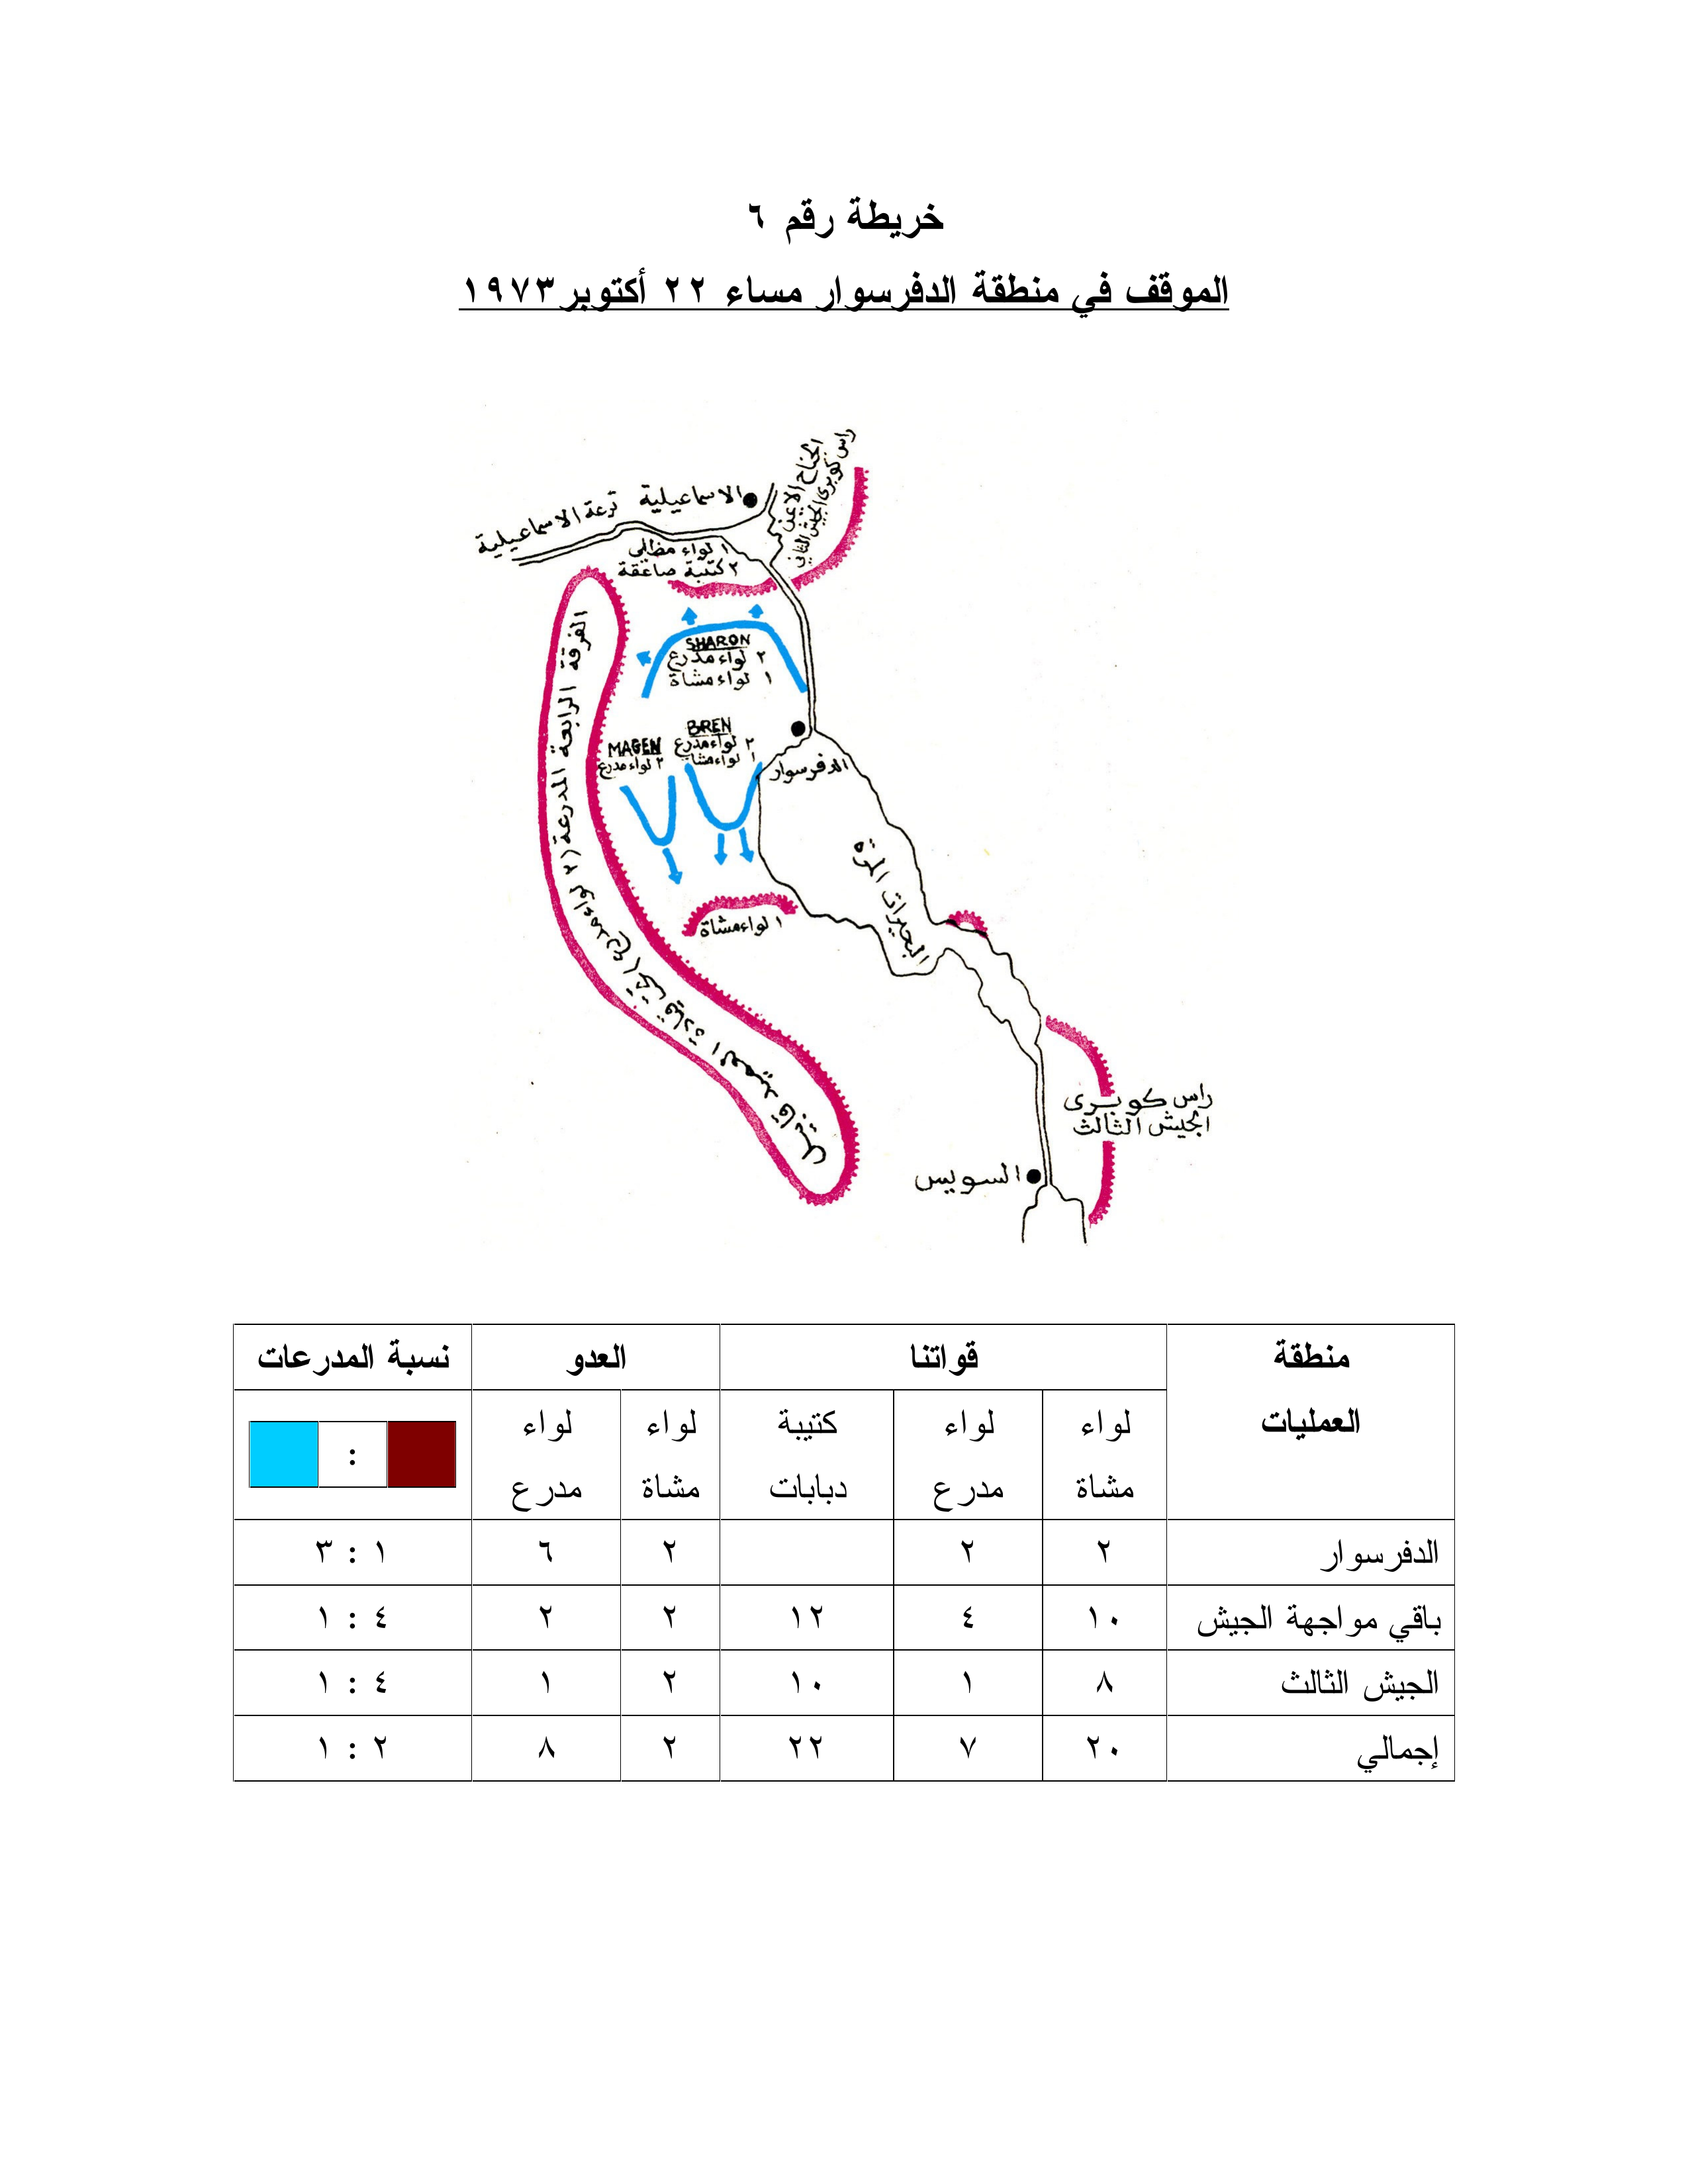 خريطة رقم ٦
الموقف في منطقة الدفرسوار مساء ٢٢ أكتوبر١٩٧٣
راس كوبرى الجيش الثاني
الجناح الايمن
الاسماعيلية
ترعة الاسماعيلية
١ لواء مظلى
٢ كتيبة صاعقة
SHARON
٢ لواء مدرع
١ لواء مشاة
BREN
٢ لواء مدرع
١ لواء مشاة
MAGEN
٢ لواء مدرع
الدفرسوار
الفرقة الرابعة المدرعة (٢ لواء مدرع) تحت قيادة العميد قابيل
البحيرات المرة
١ لواء مشاة
راس كوبرى
الجيش الثالث
السويس
منطقة العمليات قواتنا العدو نسبة المدرعات
لواء مشاة لواء مدرع كتيبة دبابات لواء مشاة لواء مدرع :
الدفرسوار ٢ ٢ ٢ ٦ ١ : ٣
باقي مواجهة الجيش ١٠ ٤ ١٢ ٢ ٢ ٤ : ١
الجيش الثالث ٨ ١ ١٠ ٢ ١ ٤ : ١
إجمالي ٢٠ ٧ ٢٢ ٢ ٨ ٢ : ١